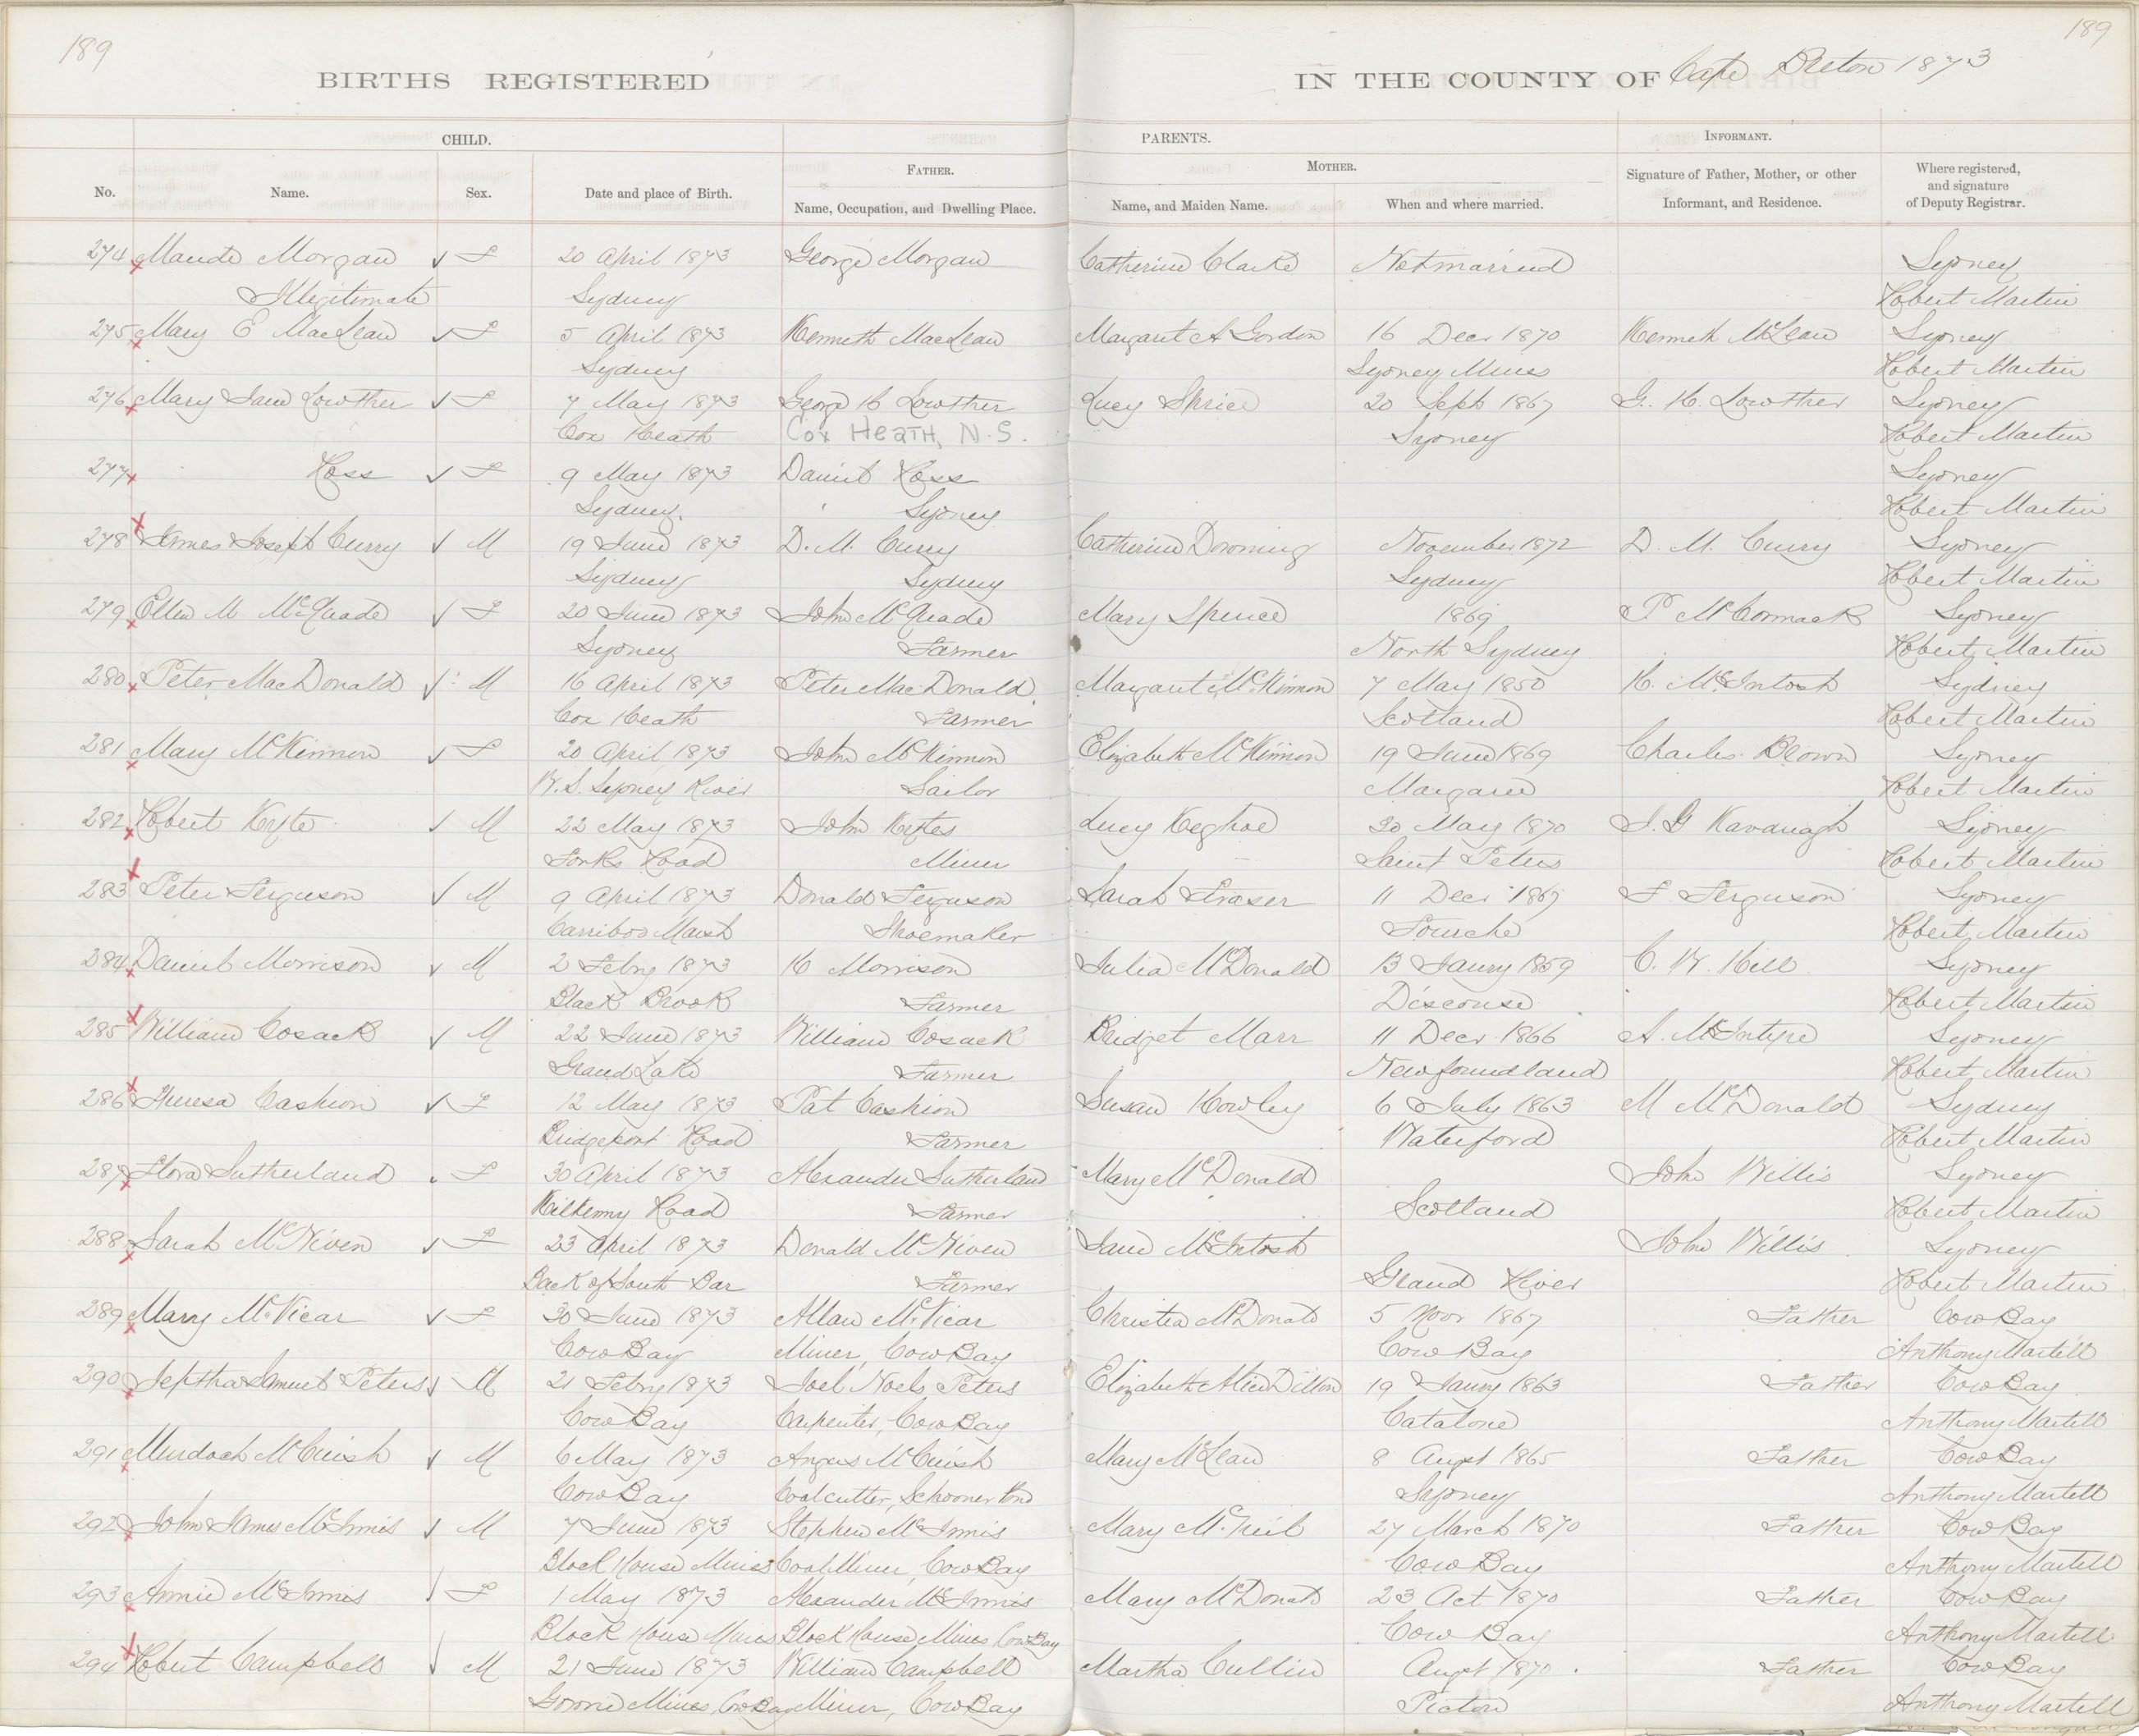 189
189
BIRTHS REGISTERED IN THE COUNTY OF Cape Breton 1873
CHILD. PARENTS. INFORMANT.
FATHER. MOTHER.
No. Name. Sex. Date and place of Birth. Name, Occupation, and Dwelling Place. Name, and Maiden Name. When and where married. Signature of Father, Mother, or other Informant, and Residence. Where registered, and signature of Deputy Registrar.
274 Maude Morgan F 20 April 1873 George Morgan Catherine Clarke Not married Sydney
Illegitimate Sydney Robert Martin
275 Mary E MacLean F 5 April 1873 Kenneth MacLean Margaret A Gordon 16 Decr 1870 Kenneth McLean Sydney
Sydney Sydney Mines Robert Martin
276 Mary Jane Lowther F 7 May 1873 George H Lowther Lucy 20 Sept 1867 G. H. Lowther Sydney
Cox Heath Cox Heath, N.S. Sydney Robert Martin
277 Ross F 9 May 1873 Daniel Ross Sydney
Sydney Sydney Robert Martin
278 James Joseph Curry M 19 June 1873 D. M. Curry Catherine Downing November 1872 D. M. Curry Sydney
Sydney Sydney Sydney Robert Martin
279 Ellen M McQuade F 20 June 1873 John McQuade Mary Spence 1869 P McCormack Sydney
Sydney Farmer North Sydney Robert Martin
280 Peter MacDonald M 16 April 1873 Peter MacDonald Margaret McKinnon 7 May 1850 H. McIntosh Sydney
Cox Heath Farmer Scotland Robert Martin
281 Mary McKinnon F 20 April 1873 John McKinnon Elizabeth McKinnon 19 June 1869 Charles Brown Sydney
W. S. Sydney River Sailor Margaree Robert Martin
282 Robert Kyte M 22 May 1873 John Kytes Lucy Keghoe 30 May 1870 J. G Kavanagh Sydney
Forks Road Miner Saint Peters Robert Martin
283 Peter Ferguson M 9 April 1873 Donald Ferguson Sarah Fraser 11 Decr 1867 F Ferguson Sydney
Carriboo Marsh Shoemaker Fourche Robert Martin
284 Daniel Morrison M 2 Febry 1873 H Morrison Julia McDonald 13 Janry 1859 C. W. Hill Sydney
Black Brook Farmer Descouse Robert Martin
285 William Cosack M 22 June 1873 William Cosack Bridget Marr 11 Decr 1866 A. McIntyre Sydney
Grand Lake Farmer Newfoundland Robert Martin
286 Theresa Cashion F 12 May 1873 Pat Cashion Susan Howley 6 July 1863 M McDonald Sydney
Bridgeport Road Farmer Waterford Robert Martin
287 Flora Sutherland F 30 April 1873 Alexander Sutherland Mary McDonald John Willis Sydney
Kilkenny Road Farmer Scotland Robert Martin
288 Sarah McNiven F 23 April 1873 Donald McNiven Jane McIntosh John Willis Sydney
Back of South Bar Farmer Grand River Robert Martin
289 Mary McVicar F 30 June 1873 Allan McVicar Christea McDonald 5 Novr 1867 Father Cow Bay
Cow Bay Miner, Cow Bay Cow Bay Anthony Martell
290 Jeptha Samuel Peters M 21 Febry 1873 Joel Noels Peters Elizabeth Alice Dillon 19 Janry 1863 Father Cow Bay
Cow Bay Carpenter, Cow Bay Catalone Anthony Martell
291 Murdoch McCuish M 6 May 1873 Angus McCuish Mary McLean 8 Augst 1865 Father Cow Bay
Cow Bay Coalcutter, Schooner Pond Sydney Anthony Martell
292 John James McInnis M 7 June 1873 Stephen McInnis Mary McNeil 27 March 1870 Father Cow Bay
Block House Mines Coal Miner, Cow Bay Cow Bay Anthony Martell
293 Annie McInnis F 1 May 1873 Alexander McInnis Mary McDonald 23 Oct 1870 Father Cow Bay
Block House Mines Block House Mines, Cow Bay Cow Bay Anthony Martell
294 Robert Campbell M 21 June 1873 William Campbell Martha Cullin Augst 1870 Father Cow Bay
Gowrie Mines, Cow Bay Miner, Cow Bay Picton Anthony Martell